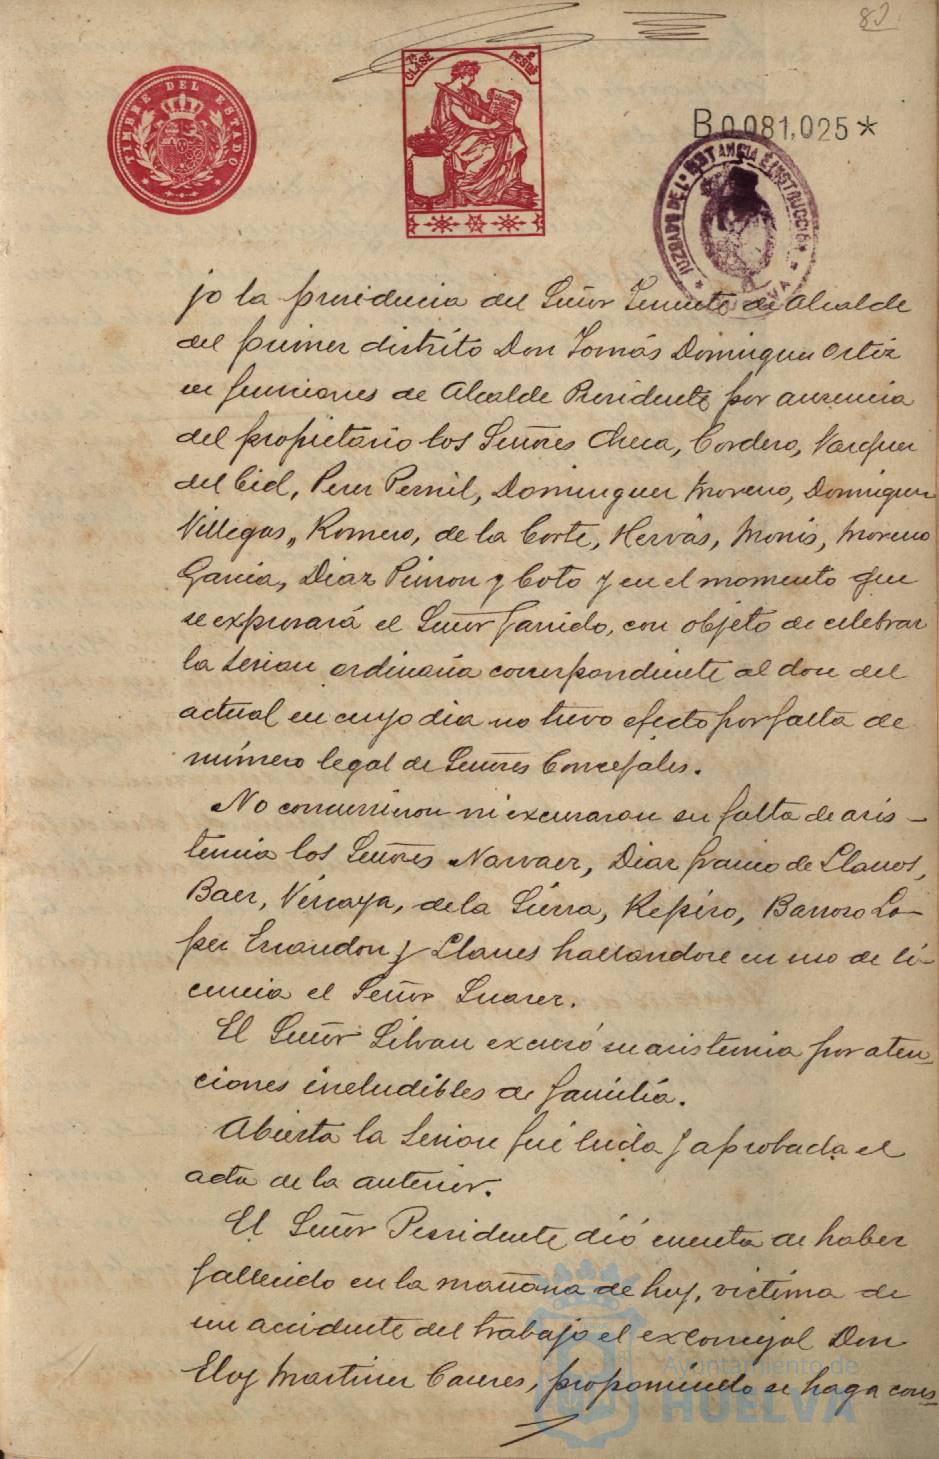 82.
TIMBRE DEL ESTADO
7ª CLASE 2 PESETAS
B0081,025*
JUZGADO DE 1ª INSTANCIA É INSTRUCCIÓN * HUELVA *
jo la presidencia del Señor Teniente de Alcalde
del primer distrito Don Tomás Dominguez Ortiz
en funciones de Alcalde Presidente por ausencia
del propietario los Señores Checa, Cordero, Vazquez
del Cid, Perez Pernil, Dominguez Moreno, Dominguez
Villegas, Romero, de la Corte, Hervás, Monis, Moreno
Garcia, Diaz Pinzon y Coto y en el momento que
se expresará el Señor Garrido, con objeto de celebrar
la sesion ordinaria correspondiente al doce del
actual en cuyo dia no tuvo efecto por falta de
número legal de Señores Concejales.
No concurrieron ni excusaron su falta de asis-
tencia los Señores Narvaez, Diaz Franco de Llanos,
Baez, Vizcaya, de la Sierra, Repiso, Barroso Lo-
pez Escandon y Llanes hallandose en uso de li-
cencia el Señor Suarez.
El Señor Silvan excusó su asistencia por aten-
ciones ineludibles de familia.
Abierta la sesion fué leida y aprobada el
acta de la anterior.
El Señor Presidente dió cuenta de haber
fallecido en la mañana de hoy, victima de
un accidente del trabajo el exconcejal Don
Eloy Martinez Caceres, proponiendo se haga cons-
Ayuntamiento de
HUELVA